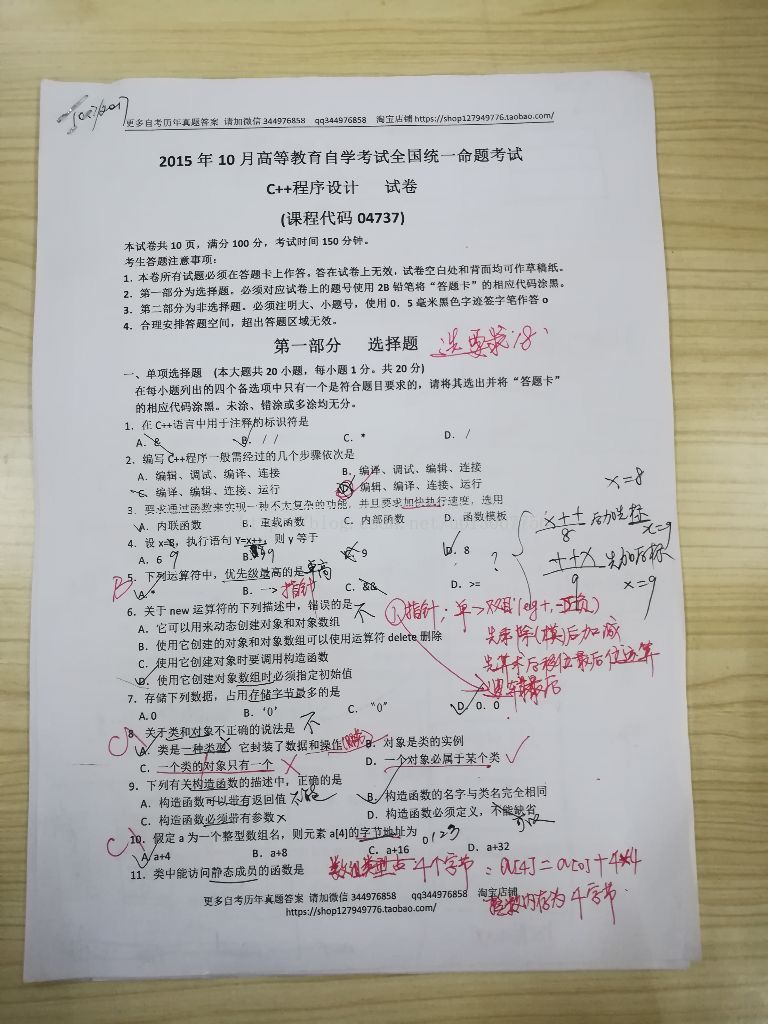 更多自考历年真题答案 请加微信 344976858 qq344976858 淘宝店铺 https://shop127949776.taobao.com/
2015 年 10 月高等教育自学考试全国统一命题考试
C++程序设计 试卷
(课程代码 04737)
本试卷共 10 页，满分 100 分，考试时间 150 分钟。
考生答题注意事项：
1．本卷所有试题必须在答题卡上作答。答在试卷上无效，试卷空白处和背面均可作草稿纸。
2．第一部分为选择题。必须对应试卷上的题号使用 2B 铅笔将“答题卡”的相应代码涂黑。
3．第二部分为非选择题。必须注明大、小题号，使用 0．5 毫米黑色字迹签字笔作答 o
4．合理安排答题空间，超出答题区域无效。
第一部分 选择题
一、单项选择题 (本大题共 20 小题，每小题 1 分。共 20 分)
在每小题列出的四个备选项中只有一个是符合题目要求的，请将其选出并将“答题卡”
的相应代码涂黑。未涂、错涂或多涂均无分。
1．在 C++语言中用于注释的标识符是
A．& B．// C．* D．/
2．编写 C++程序一般需经过的几个步骤依次是
A．编辑、调试、编译、连接 B．编译、调试、编辑、连接
C．编译、编辑、连接、运行 D．编辑、编译、连接、运行
x=8
3．要求通过函数来实现一种不太复杂的功能，并且要求加快执行速度，选用
A．内联函数 B．重载函数 C．内部函数 D．函数模板
x++ 8 x=9
4．设 x=8，执行语句 Y=x++，则 y 等于
A．6 9 C．9 D．8 ?
++x 9 x=9
5．下列运算符中，优先级最高的是 单高
B A．* B．--> 指针 C．&& D．>=
6．关于 new 运算符的下列描述中，错误的是 不
① 指针；单→双目
A．它可以用来动态创建对象和对象数组
先乘除(模)后加减
B．使用它创建的对象和对象数组可以使用运算符 delete 删除
C．使用它创建对象时要调用构造函数
D．使用它创建对象数组时必须指定初始值
7．存储下列数据，占用存储字节最多的是
A. 0 B．‘0’ C．“0” D．0．0
8．关于类和对象不正确的说法是 不
C A．类是一种类型，它封装了数据和操作 B．对象是类的实例
C．一个类的对象只有一个 D．一个对象必属于某个类
9．下列有关构造函数的描述中，正确的是
A．构造函数可以带有返回值 不能 B．构造函数的名字与类名完全相同
C．构造函数必须带有参数 D．构造函数必须定义，不能缺省
10．假定 a 为一个整型数组名，则元素 a[4]的字节地址为 0123
C A. a+4 B．a+8 C．a+16 D．a+32
11．类中能访问静态成员的函数是
数组类型占 4个字节 ：a[4]=a[0]+4*4
内存为4字节
更多自考历年真题答案 请加微信 344976858 qq344976858 淘宝店铺
https://shop127949776.taobao.com/